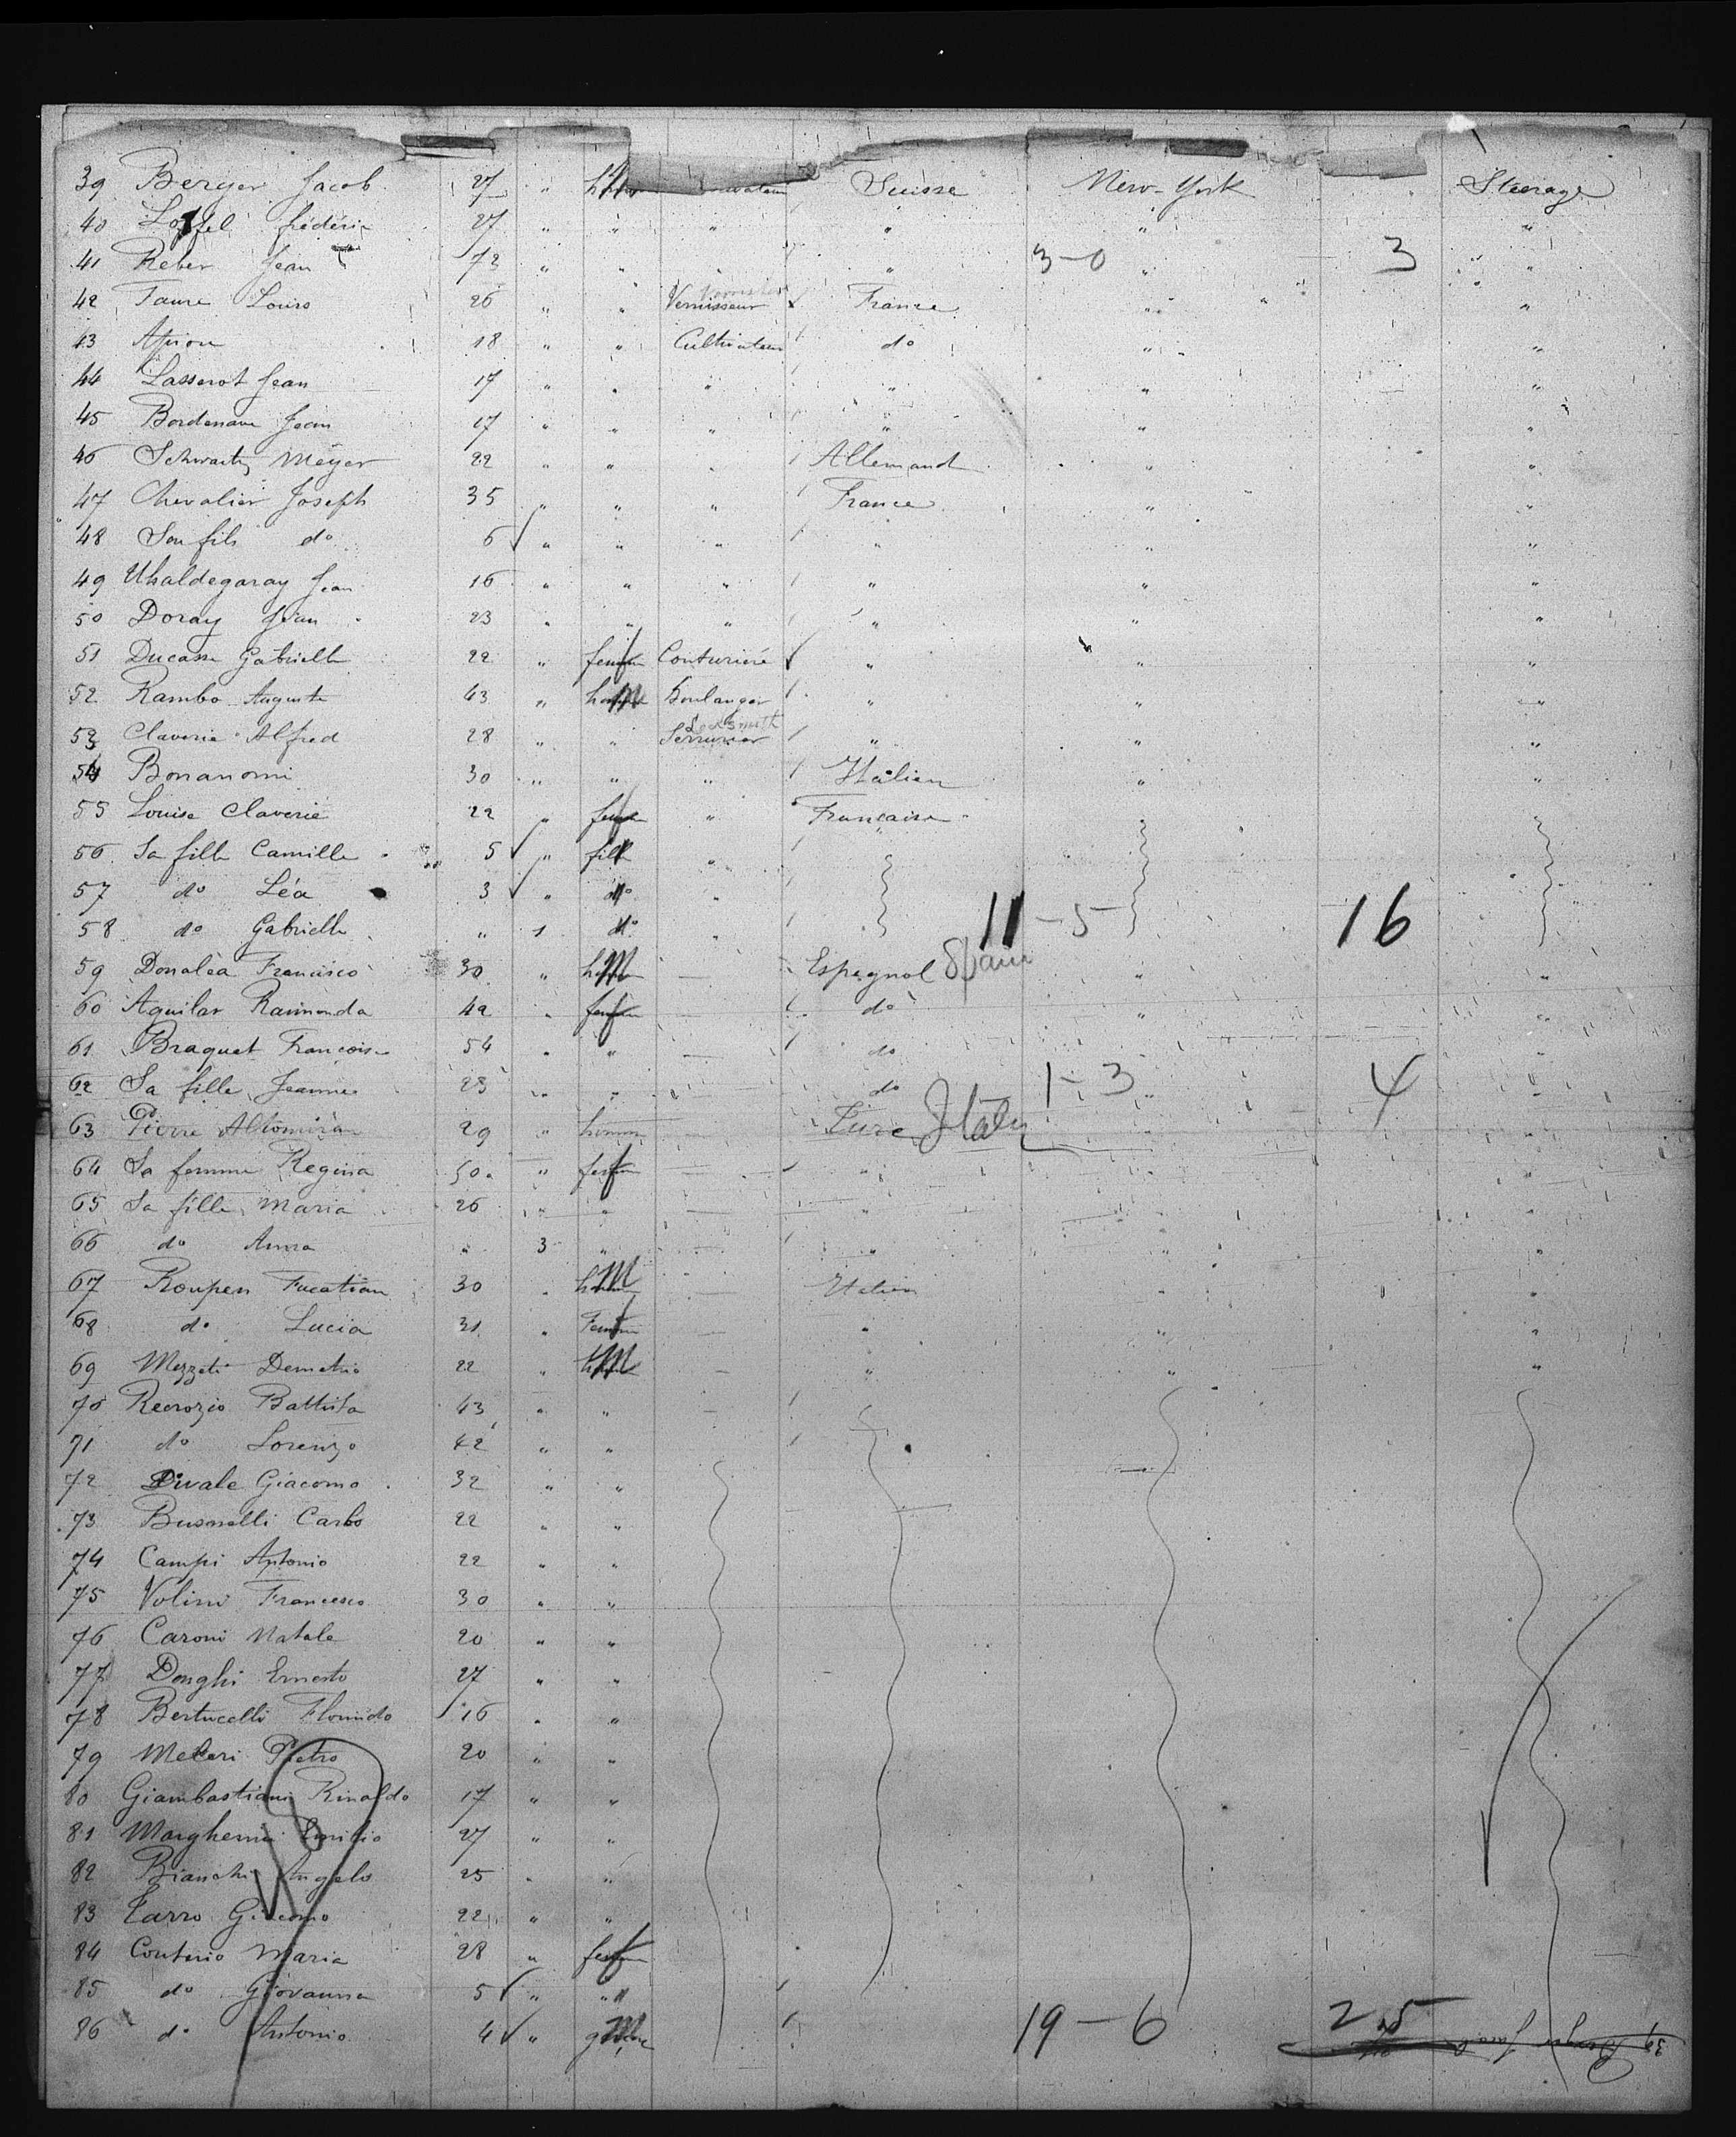 39 Berger Jacob 27 " Suisse New-York Steerage
40 Loffel frédéric 27 " " " " " "
41 Reber Jean 72 " " " " 3-0 " 3 "
42 Faure Louis 26 " " Vernisseur France " "
43 18 " " Cultivateur do " "
44 Lasserot Jean 17 " " " " " "
45 Bordenave Jean 17 " " " " " "
46 Schwartz Meyer 22 " " " Allemand " "
47 Chevalier Joseph 35 " " " France " "
48 Son fils do 6 " " " " " "
49 Uhaldegaray Jean 16 " " " " " "
50 Doray Jean 23 " " " " " "
51 Ducasse Gabrielle 22 " femme Couturière " " "
52 Rambo Auguste 43 " M Boulanger " " "
Locksmith
53 Claverie Alfred 28 " " Serrurier " " "
54 Bonanomi 30 " " " Italien " "
55 Louise Claverie 22 " f " Francaise "
56 Sa fille Camille 5 " fille " "
57 do Léa 3 " do "
58 do Gabrielle " 1 do " 11-5 16
59 Donalèa Francisco 30 " M — Espagnol Spain " "
60 Aguilar Raimonda 42 " f — do " "
61 Braquet Francoise 54 " " — do "
62 Sa fille Jeanne 23 " " do 1-3 " 4 "
63 Pierre Altomiran 29 " homme Italy " "
64 Sa femme Regina 50 " f — " "
65 Sa fille Maria 26 " " — " " "
66 do Anna " 3 " — " " "
67 Roupen Fucatian 30 " M — Italien " "
68 do Lucia 31 " Femme — " " "
69 Mezzeti Demetrio 22 " M — " " "
70 Recrozio Battista 43 " " —
71 do Lorenzo 42 " "
72 Divale Giacomo 32 " "
73 Busnelli Carlo 22 " "
74 Campi Antonio 22 " "
75 Volini Francesco 30 " "
76 Caroni Natale 20 " "
77 Donghi Ernesto 27 " "
78 Bertucelli Flomido 16 " "
79 Meleri Pietro 20 " "
80 Giambastiani Rinaldo 17 " "
81 Margherini Emilio 27 " "
82 Bianchi Angelo 25 " "
83 Zarro Giacomo 22 " "
84 Conterio Maria 28 " f
85 do Giovanna 5 " "
86 do Antonio 4 " M 19-6 25
39 Berger Jacob